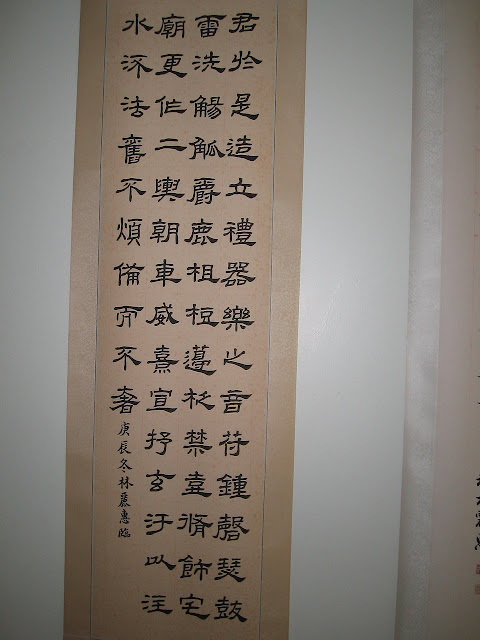 君於是造立禮器樂之音苻鍾磬瑟鼓
雷洗觴觚爵鹿柤梪籩柉禁壺脩飾宅
廟更作二輿朝車威熹宣抒玄汙以注
水流法舊不煩備而不奢
庚辰冬林麗惠臨